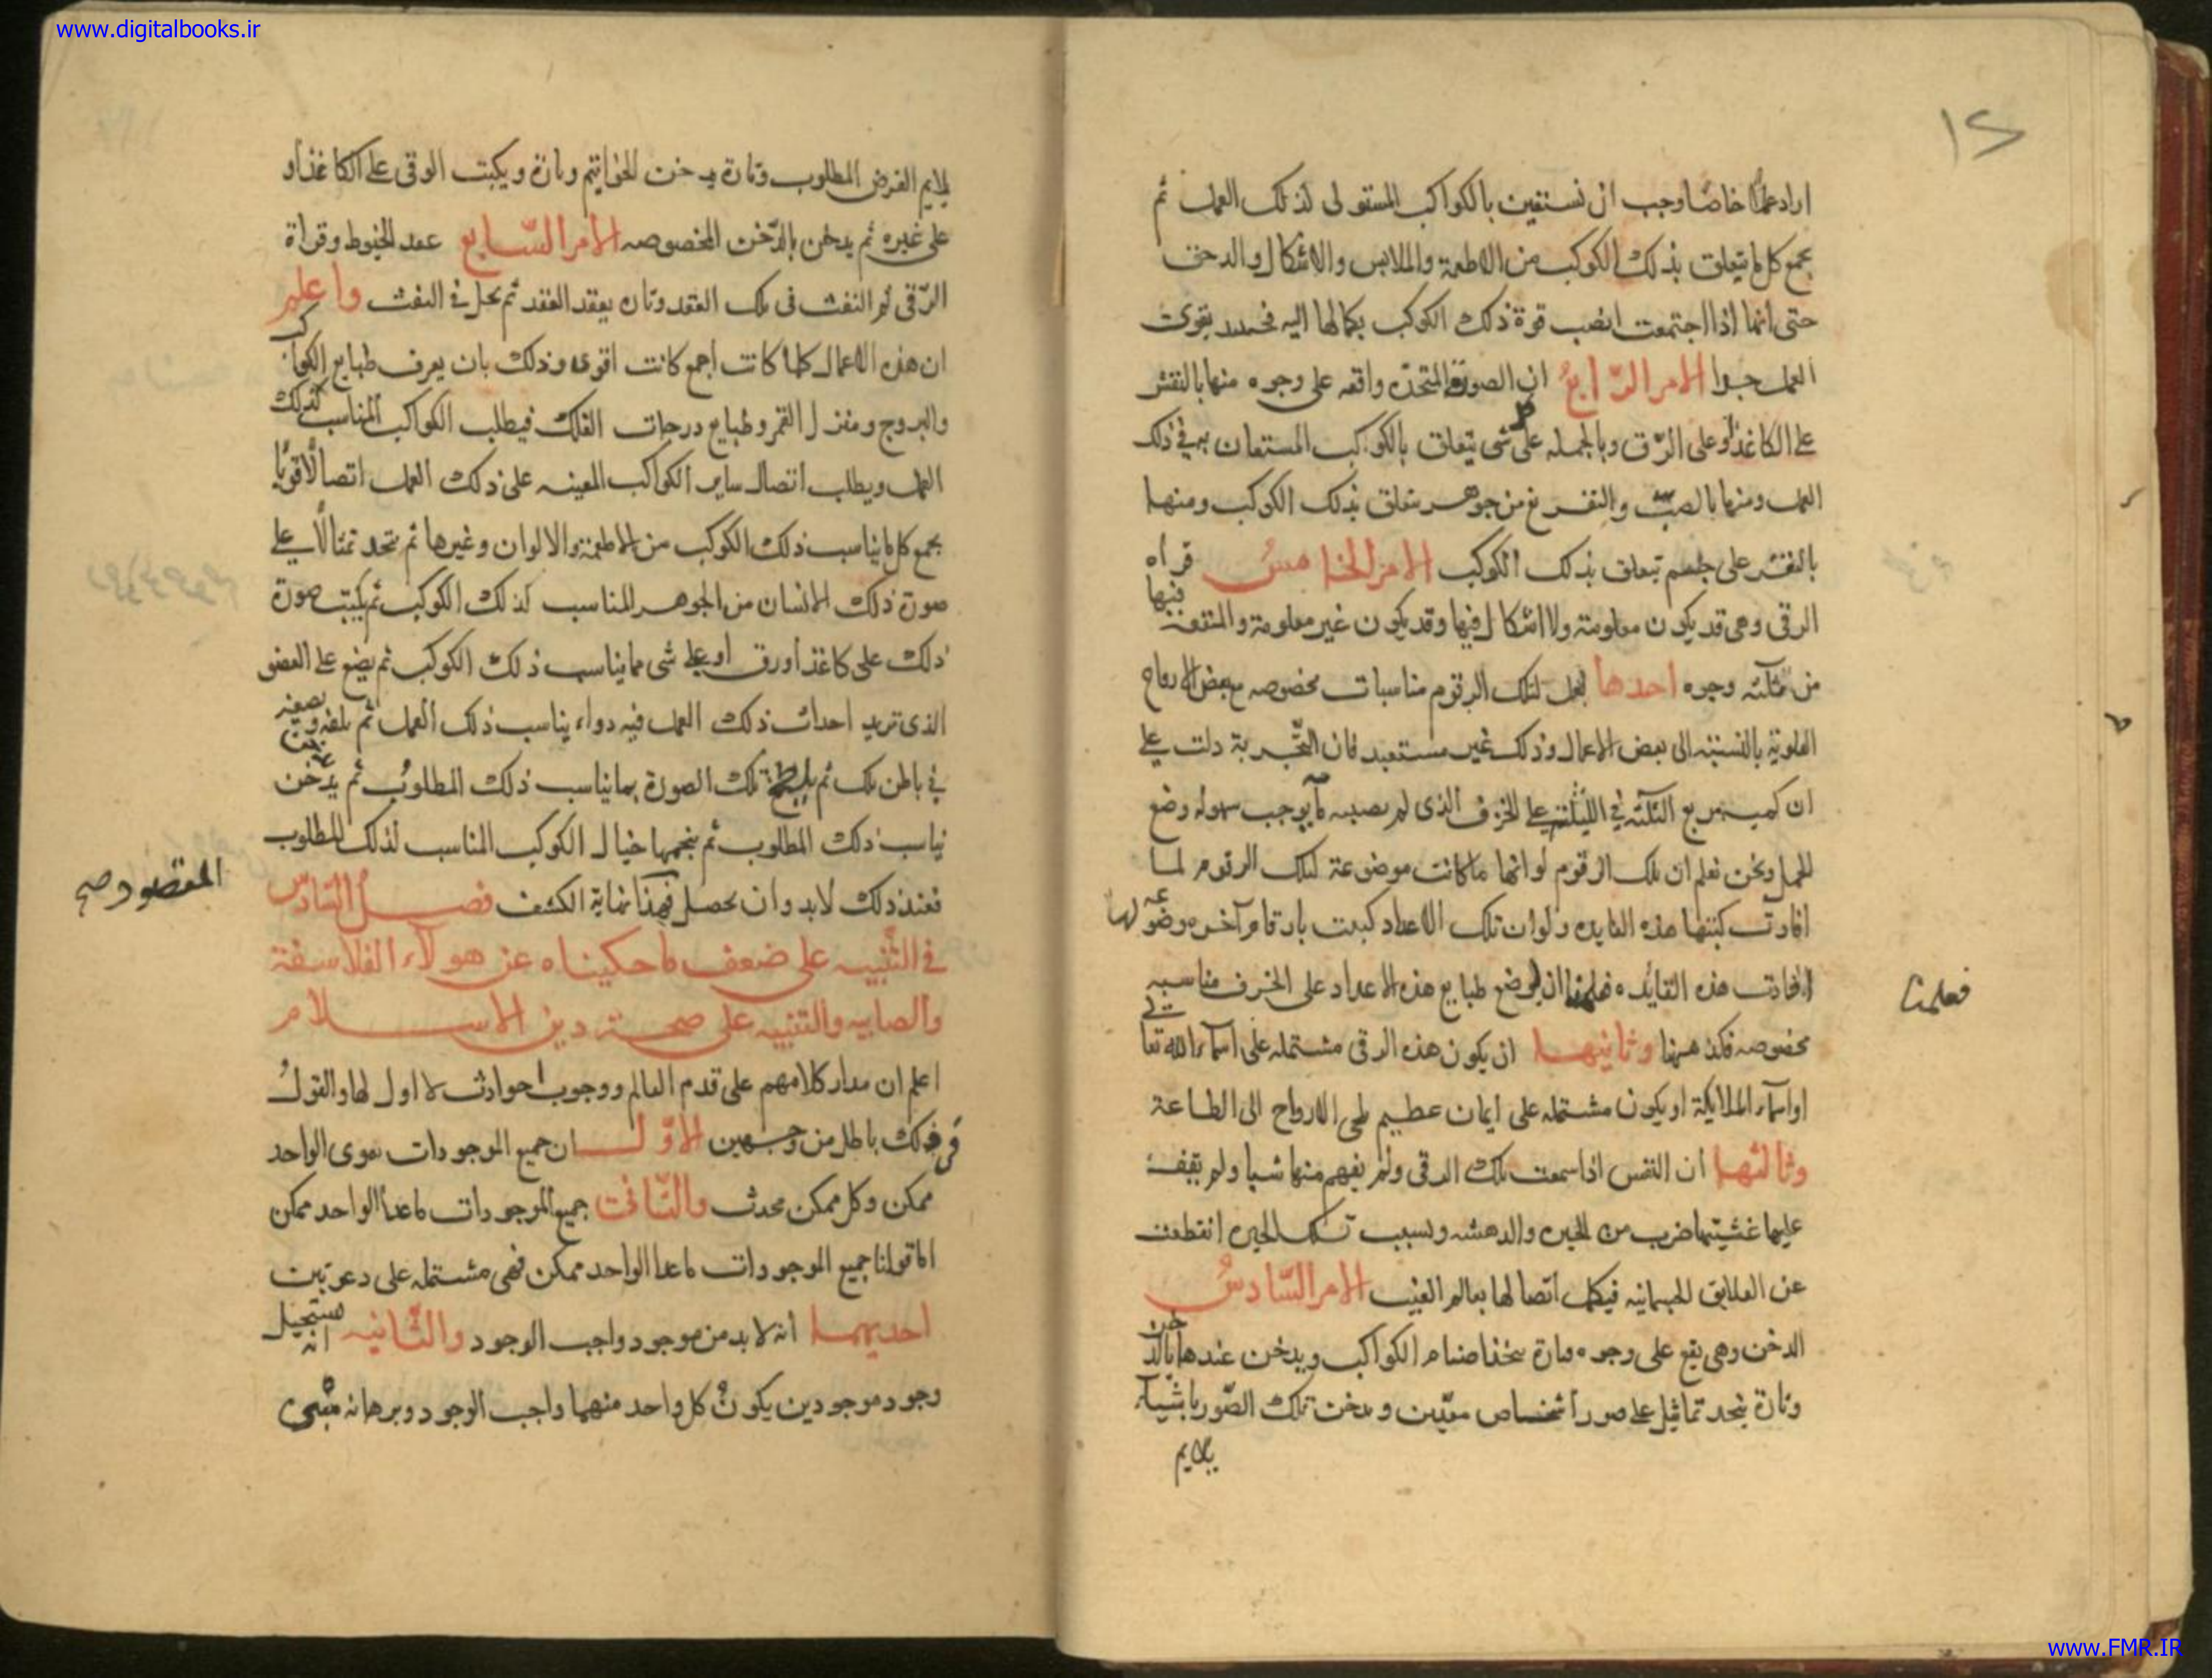 www.digitalbooks.ir
١٢
اراد عملا خاصا وجب ان نستعين بالكواكب المستولى لذلك العمل ثم
يجمع كل ما يتعلق بذلك الكوكب من الاطعمة والملابس والاشكال والدخن
حتى انها اذا اجتمعت انصب قوة ذلك الكوكب بكمالها اليه فحينئذ يقوى
العمل جدا الامر الرّابعُ ان الصورة المتخذة واقعه على وجوه منها بالنقش
على الكاغذ او على الرّق وبالجمله على شى يتعلق بالكوكب المستعان به فى ذلك
العمل ومنها بالصبّ والتفريغ من جوهر يتعلق بذلك الكوكب ومنها
بالنقش على جسم تتعلق بذلك الكوكب الامر الخامسُ قراه
الرقى وهى قد يكون معلومة ولا اشكال فيها وقد يكون غير معلومة والمنفعة فيها
من ثلثه وجوه احدها لعل لتلك الرقوم مناسبات مخصوصه مع بعض الارواح
العلوية بالنسبة الى بعض الاعمال وذلك غير مستبعد فان التّجربة دلت على
ان مربع الثلثه فى الثلثة على الخزف الذى لم يصبه ماء يوجب سهوله وضع
الحمل ونحن نعلم ان تلك الرقوم لو انها ما كانت موضوعة لتلك الرقوم لما
افادت كتبتها هذه الفايده ولو ان تلك الاعداد كتبت بارقام آخر موضوعه لها
افادت هذه الفايده فعلمنا ان لوضع طبايع هذه الاعداد على الخزف مناسبه
فعلمنا
مخصوصه فكذا ههنا وثانيها ان يكون هذه الرقى مشتمله على اسماء الله تعالى
او اسماء الملايكة او يكون مشتمله على ايمان عظيم الارواح الى الطاعة
وثالثها ان النفس اذا سمعت تلك الرقى ولم يفهم منها شيا ولم يقف
عليها غشيتها ضرب من الحيره والدهشه وبسبب تلك الحيره انقطعت
عن العلايق الجسمانيه فيكمل اتصالها بعالم الغيب الامر السّادسُ
الدخن وهى يقع على وجوه وتارة يتخذ اصنام الكواكب ويدخن عندها بالدخن
وتارة يتخد تماثيل على صور اشخاص معيّن ويدخن تلك الصّور باشياء
يلايم
يلايم الغرض المطلوب وتارة يدخن الخواتيم وتارة ويكتب الرقى على الكاغذ او
على غيره ثم يدخن بالدّخن المخصوصه الامر السّابع عقد الخيوط وقراة
الرّقى ثم النفث فى تلك العقد وتارة يعقد العقد ثم يحل فى النفث واعلم
ان هذه الاعمال كلما كانت اجمع كانت اقوى وذلك بان يعرف طبايع الكواكب
والبروج ومنازل القمر وطبايع درجات الفلك فيطلب الكواكب المناسب لذلك
العمل ويطلب اتصال ساير الكواكب المعينه على ذلك العمل اتصالًا قويًا
يجمع كل ما يناسب ذلك الكوكب من الاطعمة والالوان وغيرها ثم يتخد تمثالًا على
صورة ذلك الانسان من الجوهر المناسب لذلك الكوكب ثم يكتب صورة
ذلك على كاغذ او رق او على شى مما يناسب ذلك الكوكب ثم يضع على العضو
الذى تريد احداث ذلك العمل فيه دواء يناسب ذلك العمل ثم يلفه ويضعه
فى باطن تلك ثم تلك الصورة بما يناسب ذلك المطلوب ثم يدخن
يناسب ذلك المطلوب ثم خيال الكوكب المناسب لذلك المطلوب
فعند ذلك لابد وان يحصل فهذا نهاية الكشف فصل السّادس
المقصود صح
فى التّنبيه على ضعف ما حكيناه عن هولاء الفلاسفة
والصابيه والتنبيه على صحة دين الاسلام
اعلم ان مدار كلامهم على قدم العالم ووجوب حوادث لا اول لها والقولُ
فى ذلك باطل من وجهين الاوّل ان جميع الموجودات سوى الواحد
ممكن وكل ممكن محدث والثّانى جميع الموجودات ما عدا الواحد ممكن
اما قولنا جميع الموجودات ما عدا الواحد ممكن فهى مشتمله على دعوتين
احديهما انه لا بد من موجود واجب الوجود والثّانيه انه يستحيل
وجود موجودين يكون كل واحد منهما واجب الوجود وبرهانه مبنى
www.FMR.IR